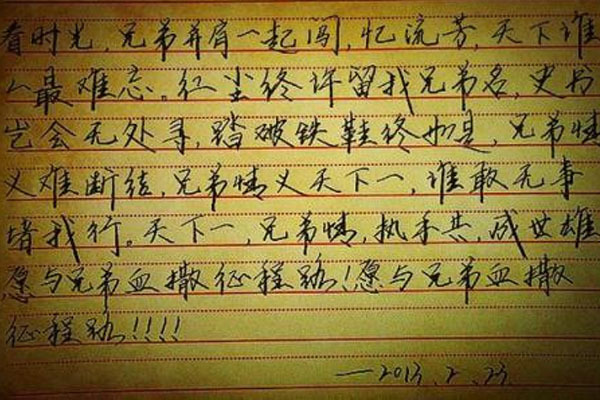 看时光,兄弟并肩一起闯,忆流芳,天下谁
人最难忘。红尘终许留我兄弟名,史书
岂会无处寻,踏破铁鞋终如是,兄弟情
义难断结,兄弟情义天下一,谁敢无事
堵我行。天下一,兄弟情,执手共,成世雄
愿与兄弟血撒征程路!愿与兄弟血撒
征程路!!!!
—2013.2.23.